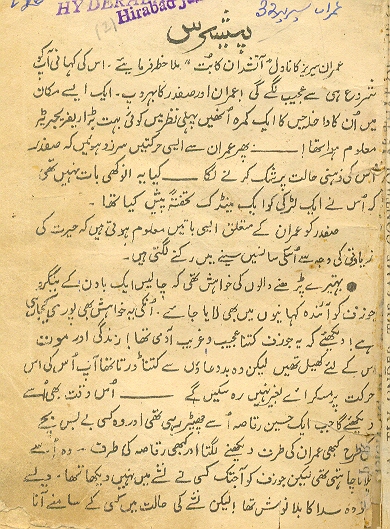 HYDERA
Hirabad
عمران سیریز 32
پیشرس
عمران سیریز کا ناول "آتشدان کا بُت" ملاحظہ فرمایئے۔ اس کی کہانی آپ کو
شروع ہی سے عجیب لگے گی! عمران اور صفدر کا بہروپ۔ ایک ایسے مکان
میں اُن کا داخلہ جس کا ایک کمرہ اُنھیں پہلی نظر میں کوئی بہت بڑا ریفریجریٹر
معلوم ہوا تھا! ــــــ پھر عمران سے ایسی حرکتیں سرزد ہوئیں کہ صفدر
اُس کی ذہنی حالت پر شک کرنے لگا ــــــ کیا یہ انوکھی بات نہیں تھی
کہ اُس نے ایک لڑکی کو ایک مینڈک تحفتہً پیش کیا تھا۔
صفدر کو عمران کے متعلق ایسی باتیں معلوم ہوتی ہیں کہ حیرت کی
زیادتی کی وجہ سے اُسکی سانسیں سینے میں رکنے لگتی ہیں۔
● بہتیرے پڑھنے والوں کی خواہش تھی کہ چالیس ایک بادن کے
جوزف کو آئندہ کہانیوں میں بھی لایا جائے۔ اُنکی یہ خواہش بھی پوری کیجا رہی
ہے! دیکھئے کہ یہ جوزف کتنا عجیب و غریب آدمی تھا! زندگی اور موت
اس کے لئے کھیل تھیں لیکن وہ بددعاؤں سے کتنا ڈرتا تھا آپ اُس کی اس
حرکت پر مسکرائے بغیر نہیں رہ سکیں گے ــــــ اُس وقت بھی اُسے
دیکھئے گا جب ایک حسین رقاصہ اُسے چھیڑ رہی تھی اور وہ کسی بے بس بچے
طرح کبھی عمران کی طرف دیکھنے لگتا اور کبھی رقاصہ کی طرف۔ وہ اُسے
پلانا چاہتی تھی لیکن جوزف کو آجتک کسی نے نشے میں نہیں دیکھا تھا۔ ویسے
وہ سدا کا بلانوش تھا! لیکن نشے کی حالت میں کسی کے سامنے آنا